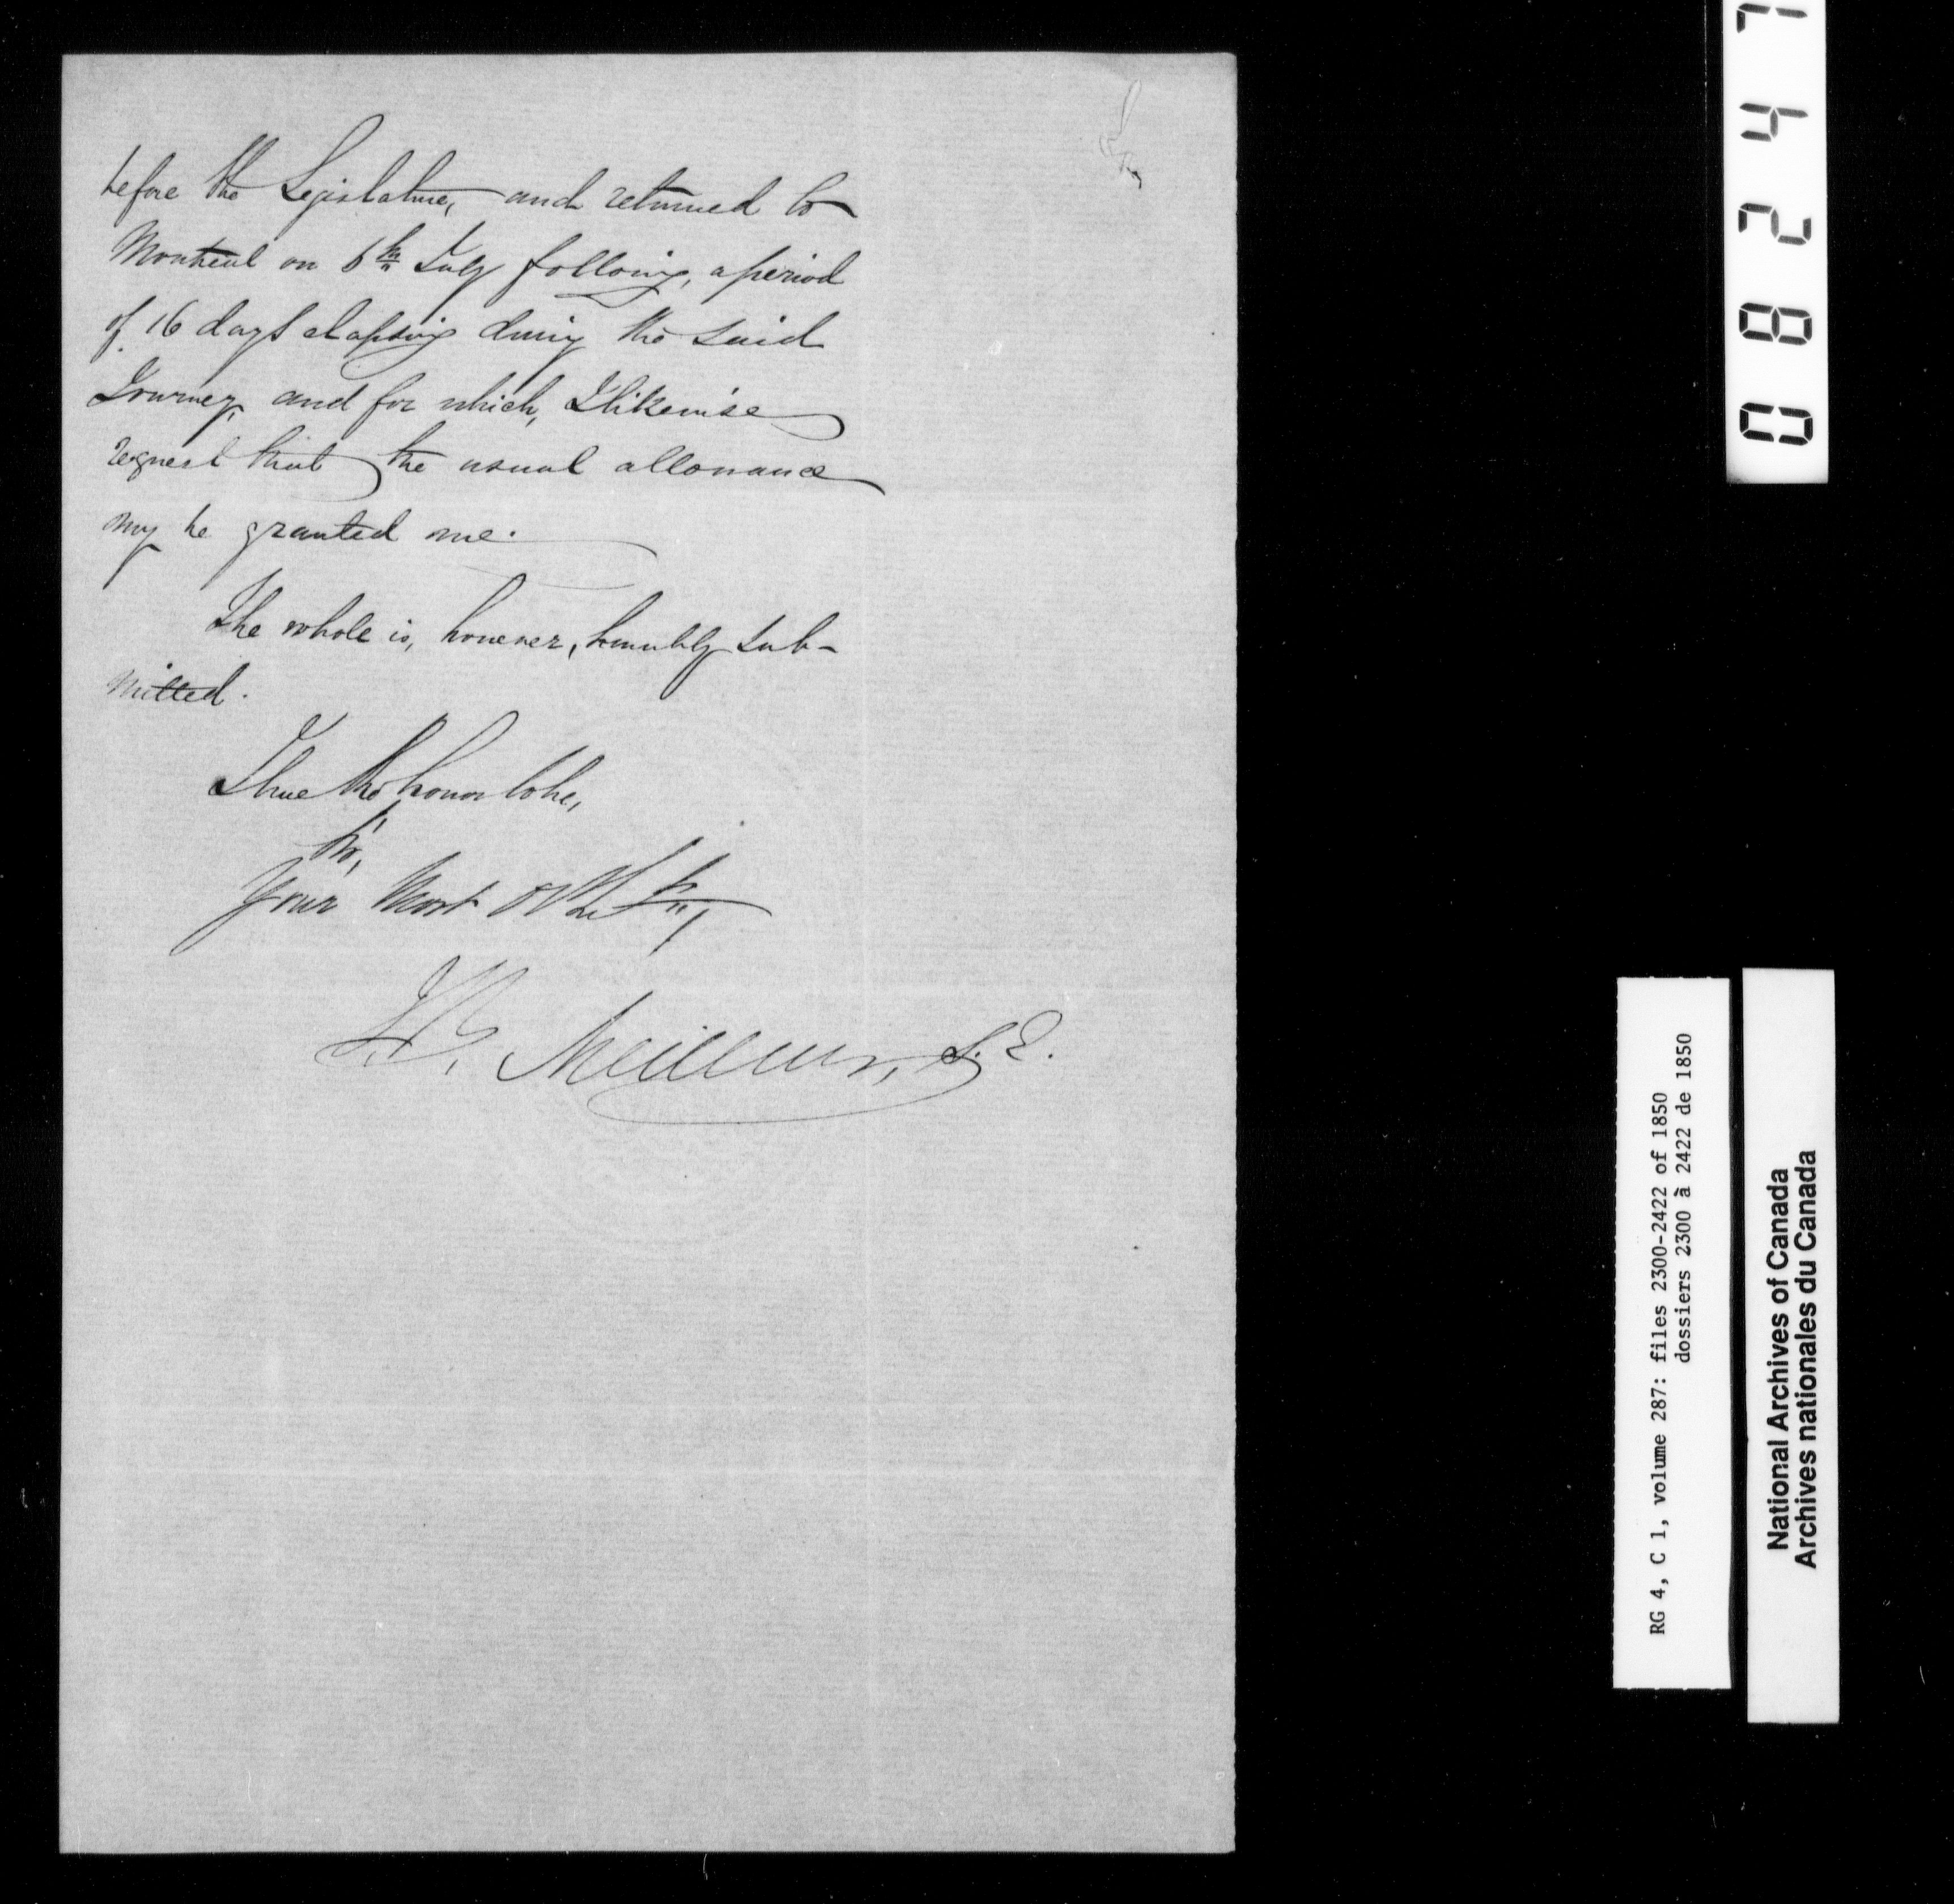 before the Legislature, and returned to
Montreal on 6th July following, a period
of 16 days elapsing during the said
Journey, and for which, I likewise
request that the usual allowance
my be granted me.
The whole is, however, humbly sub-
mitted.
I have the honor to be,
Sir,
Your Most Obt
J. B. Meilleur, S. E.
08247
RG 4, C 1, volume 287: files 2300-2422 of 1850
dossiers 2300 à 2422 de 1850
National Archives of Canada
Archives nationales du Canada